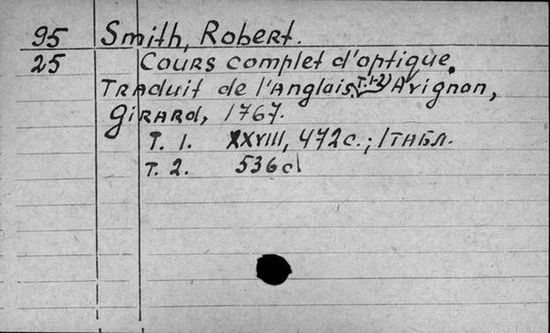 95 Smith, Robert.
25 Cours complet d'optique.
Traduit de l'Anglais. T.1-2) Avignon,
Girard, 1767.
T. 1. XXVIII, 472 с.; 1 табл.
T. 2. 536 с